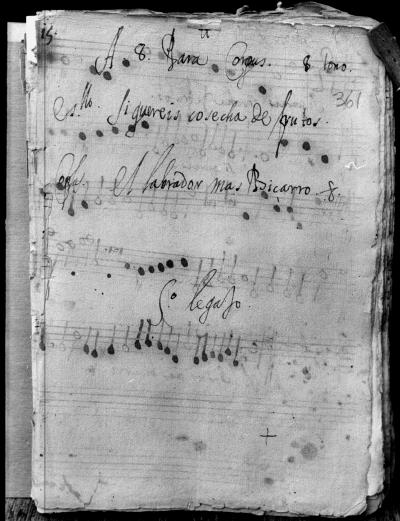 15.
A 8. Para Corpus. 8 Tono.
361
Es.llo. Si quereis cosecha de frutos.
Copla. El labrador mas Biçarro. 8.
5.o legaJo.